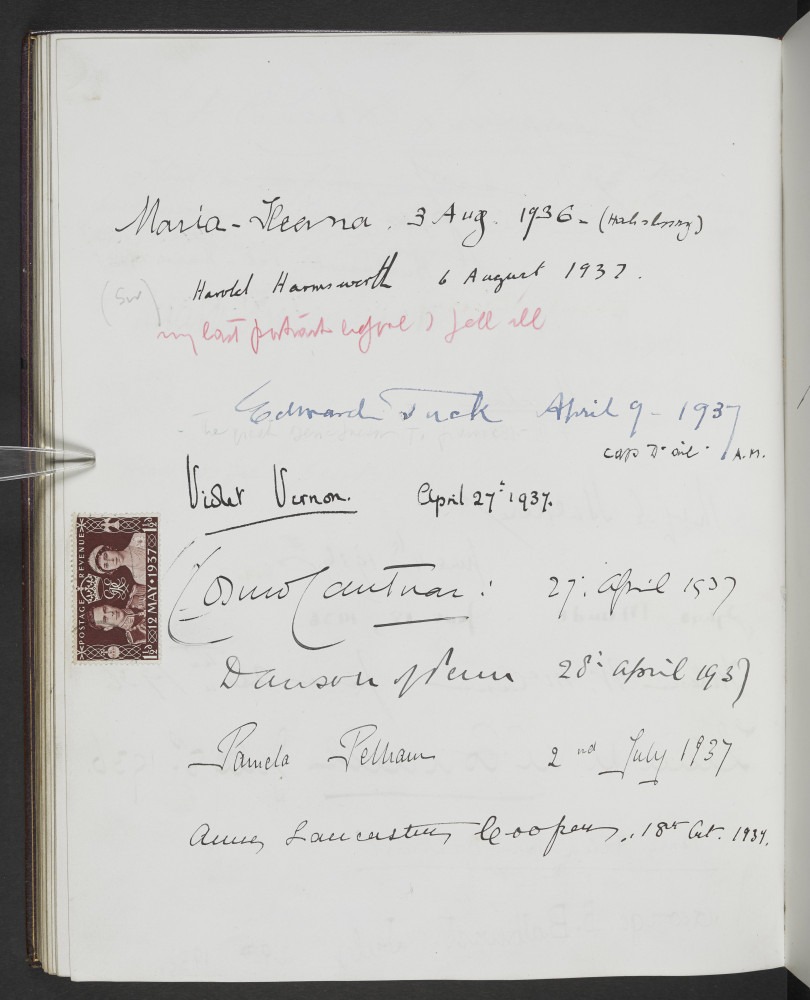 Maria-Ileana. 3 Aug. 1936 - (Habsburg)
Harold Harmsworth 6 August 1937.
(Sir)
my last portrait before I fell ill
Edward Tuck April 9 - 1937
Cap D'ail. A.M.
Violet Vernon. April 27th 1937.
POSTAGE REVENUE
12 MAY·1937
1½D 1½D
Cosmo Cantuar: 27. April 1937
Dawson of Penn 28th April 1937
Pamela Pelham 2nd July 1937
Anne Lancaster Cooper. 18th Oct. 1937.